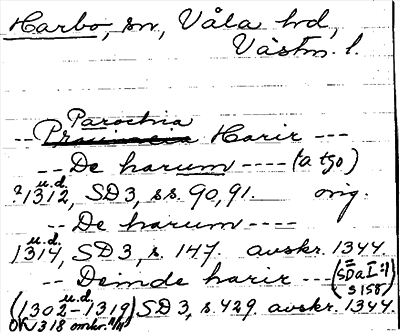 Harbo, sn, Våla hd,
Västm. l.
Parochia
-- Provincia Harir ---
-- De harum ---- (a tgo)
u.d.
?1312, SD3, ss. 90, 91. orig.
-- De harum ----
u.d.
1314, SD3, s. 147. avskr. 1344.
-- Deinde harir -- (SDaI:1
s 158)
u.d.
(1302-1319) SD3, s. 429 avskr. 1344.
1318 omkr.